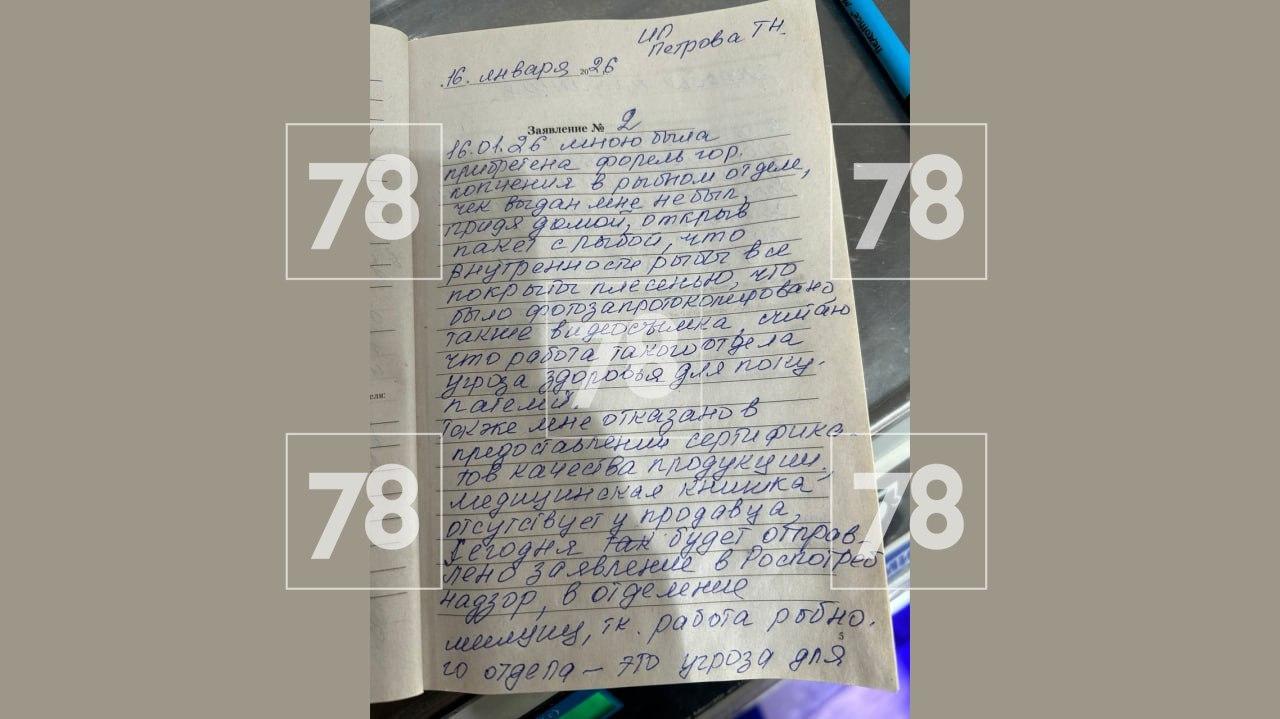 ИП
Петрова Т.Н.
16. января 2026
Заявление № 2
16.01.26 мною была
приобретена форель гор.
копчения в рыбном отделе,
чек выдан мне не был,
придя домой, открыв
пакет с рыбой, что
внутренносте рыбы все
покрыты плесенью, что
было фотозапротоколировано
также видеосъемка, считаю
что работа такого отдела
угроза здоровья для поку-
пателей.
Также мне отказано в
предоставлении сертифика-
тов качества продукции,
медицинская книжка
отсутствует у продавца,
Сегодня так будет отправ-
лено заявление в Роспотреб
надзор, в отделение
милиции, т.к. работа рыбно-
го отдела – это угроза для
5
ели:
78
78
78
78
78